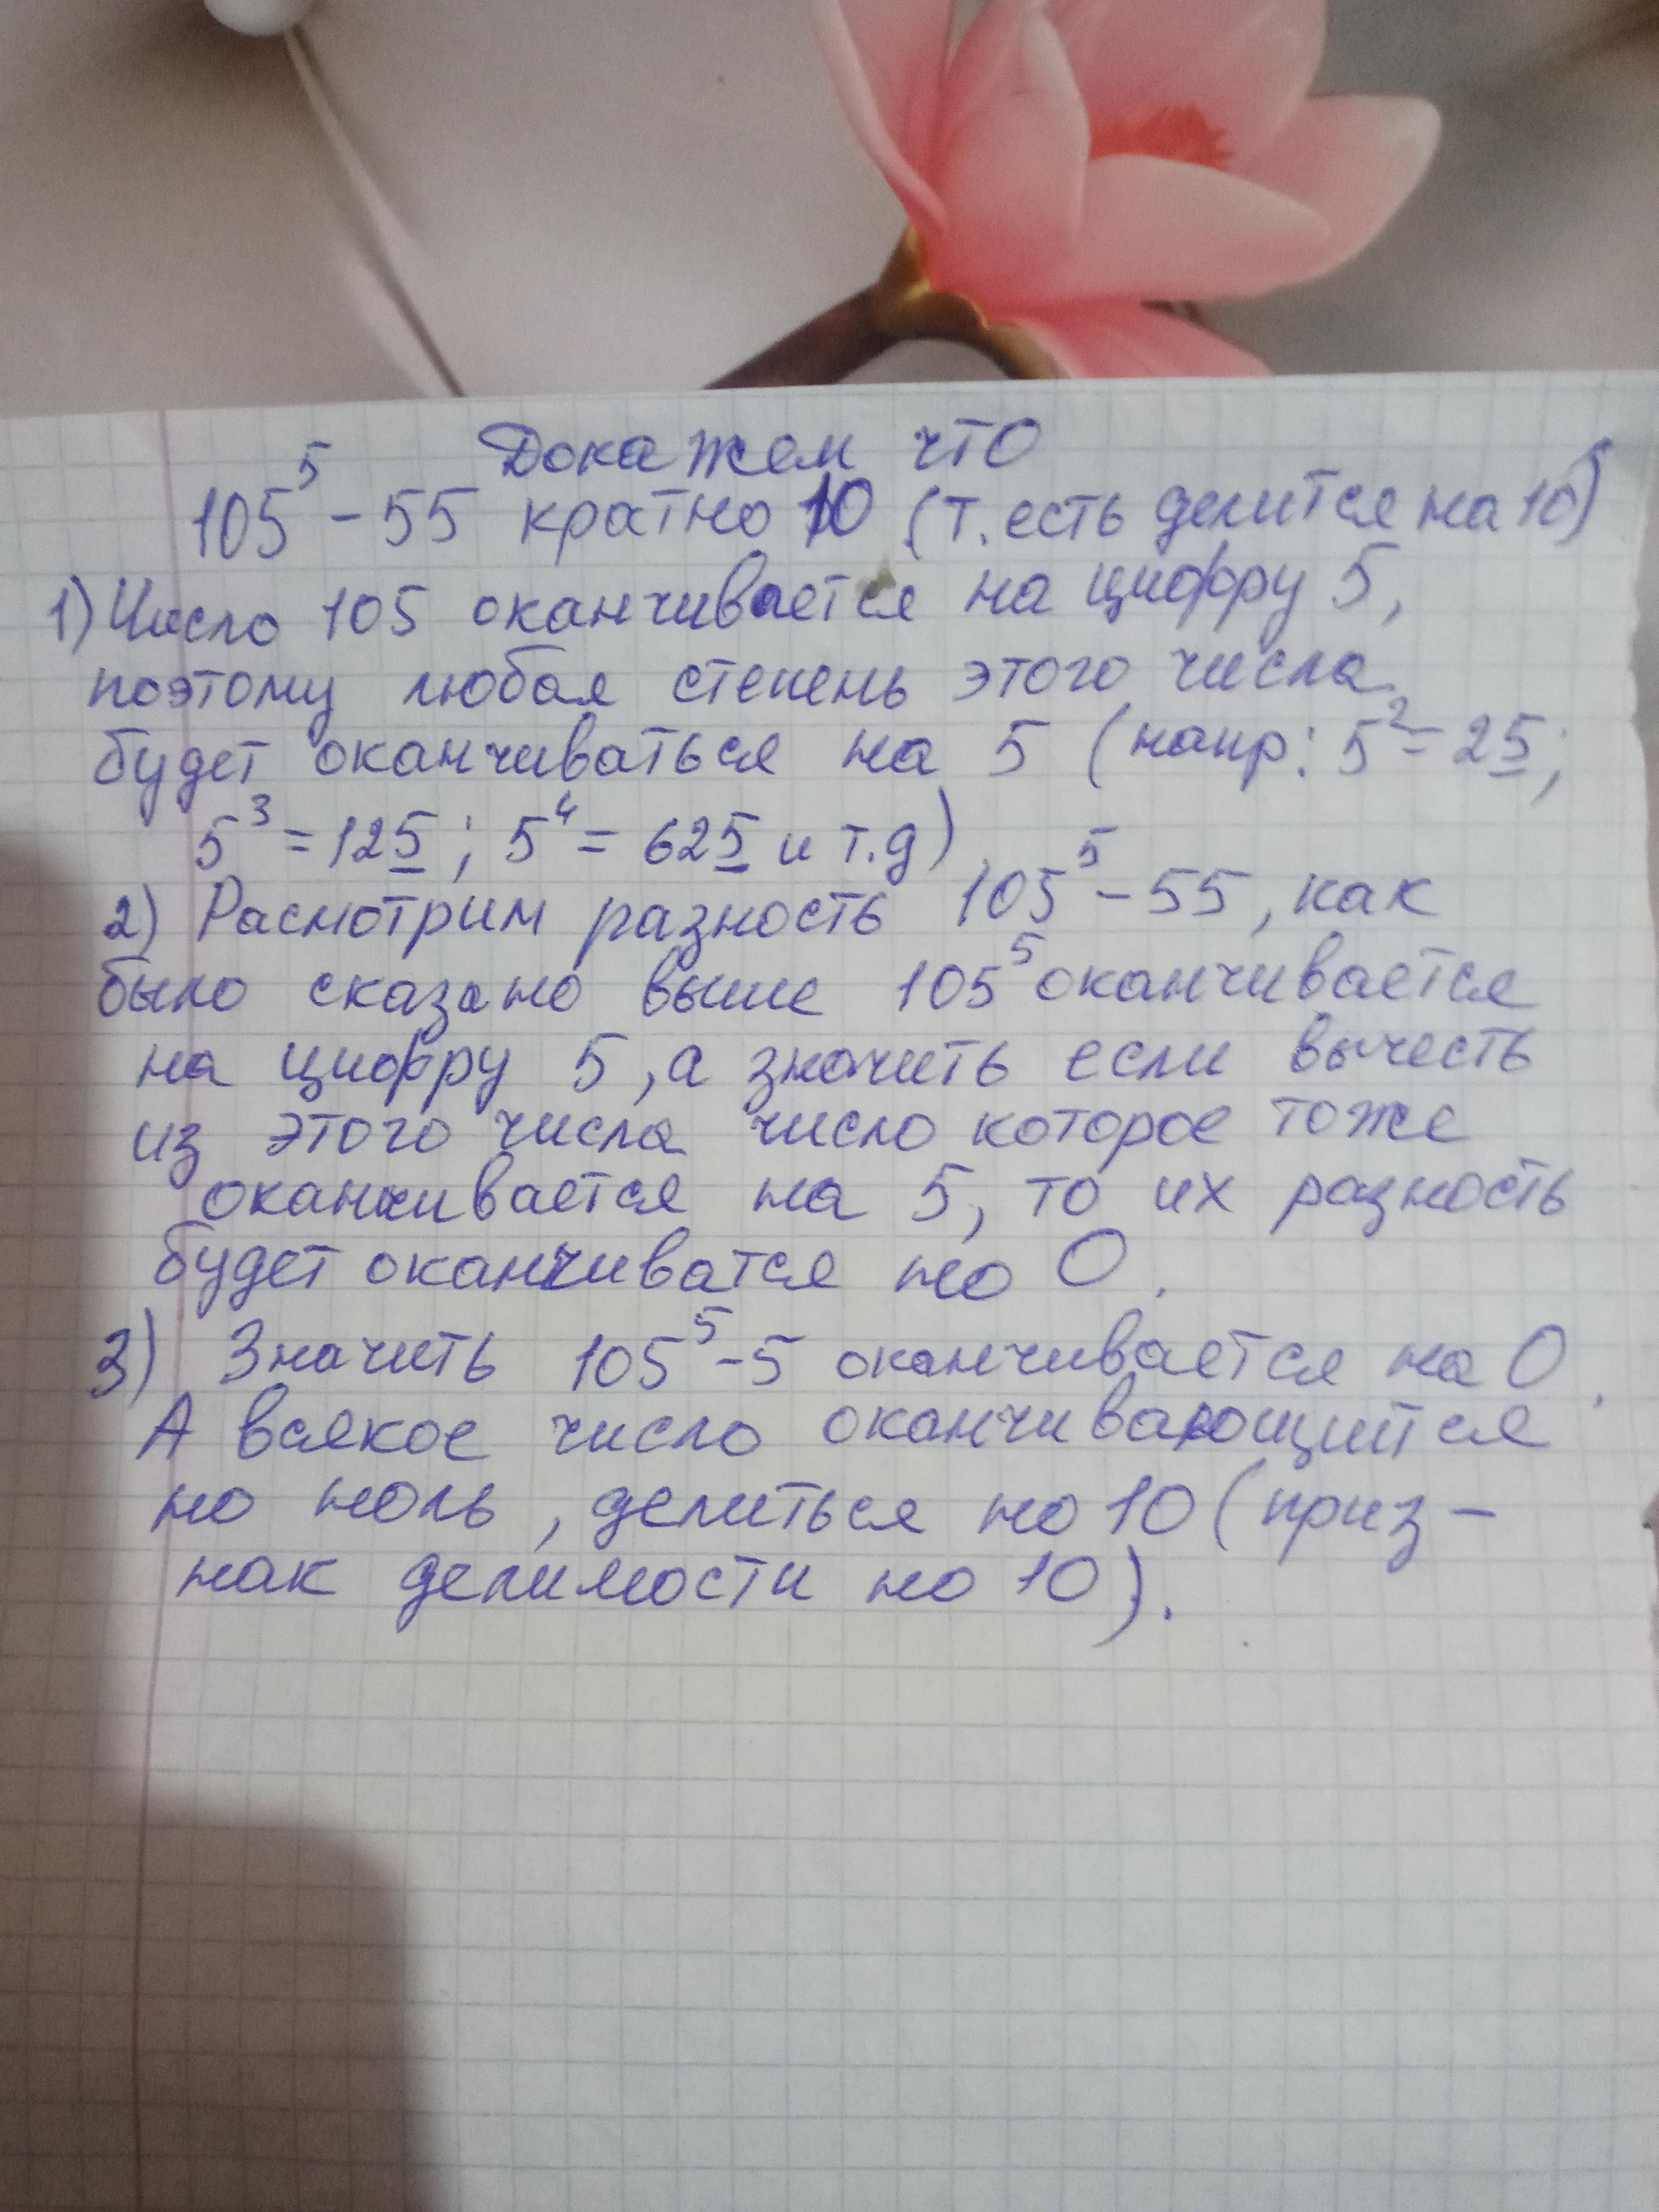 Докажем что
105⁵ - 55 кратно 10 (т. есть делится на 10)
1) Число 105 оканчивается на цифру 5,
поэтому любая степень этого числа
будет оканчиваться на 5 (напр: 5² = 25;
5³ = 125; 5⁴ = 625 и т.д)
2) Расмотрим разность 105⁵ - 55, как
было сказано выше 105⁵ оканчивается
на цифру 5, а значить если вычесть
из этого числа число которое тоже
оканчивается на 5, то их разность
будет оканчиватся на 0.
3) Значить 105⁵ - 5 оканчивается на 0.
А всякое число оканчивающийтся
на ноль, делиться на 10 (приз-
нак делимости на 10).